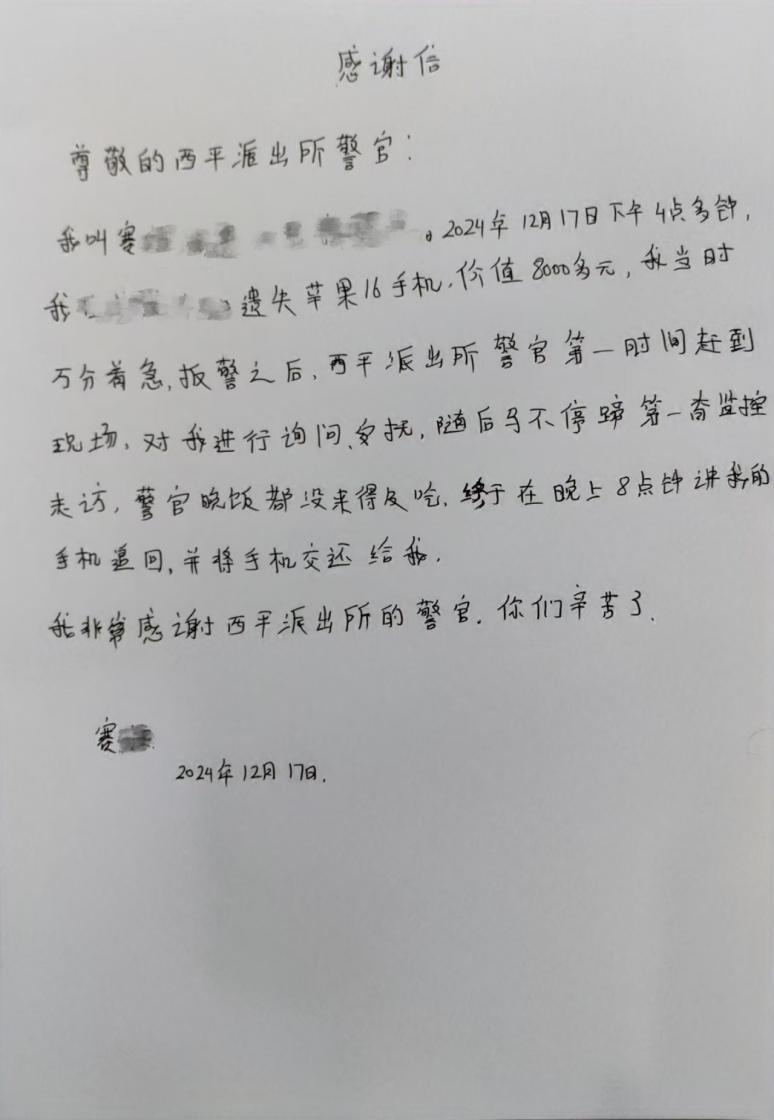 感谢信
尊敬的西平派出所警官：
我叫赛。2024年12月17日下午4点多钟，
我遗失苹果16手机，价值8000多元，我当时
万分着急，报警之后，西平派出所警官第一时间赶到
现场，对我进行询问、安抚，随后马不停蹄第一查监控
走访，警官晚饭都没来得及吃，终于在晚上8点钟讲我的
手机追回，并将手机交还给我。
我非常感谢西平派出所的警官。你们辛苦了。
赛
2024年12月17日.